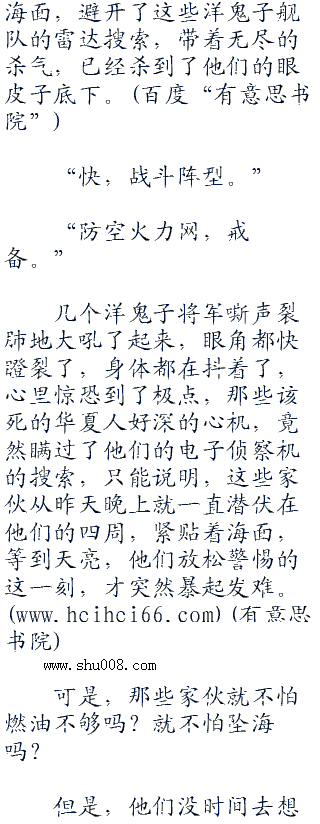 海面，避开了这些洋鬼子舰
队的雷达搜索，带着无尽的
杀气，已经杀到了他们的眼
皮子底下。(百度“有意思书
院”)
“快，战斗阵型。”
“防空火力网，戒
备。”
几个洋鬼子将军嘶声裂
肺地大吼了起来，眼角都快
蹬裂了，身体都在抖着了，
心里惊恐到了极点，那些该
死的华夏人好深的心机，竟
然瞒过了他们的电子侦察机
的搜索，只能说明，这些家
伙从昨天晚上就一直潜伏在
他们的四周，紧贴着海面，
等到天亮，他们放松警惕的
这一刻，才突然暴起发难。
(www.hcihci66.com)(有意思
书院)
www.shu008.com
可是，那些家伙就不怕
燃油不够吗？就不怕坠海
吗？
但是，他们没时间去想